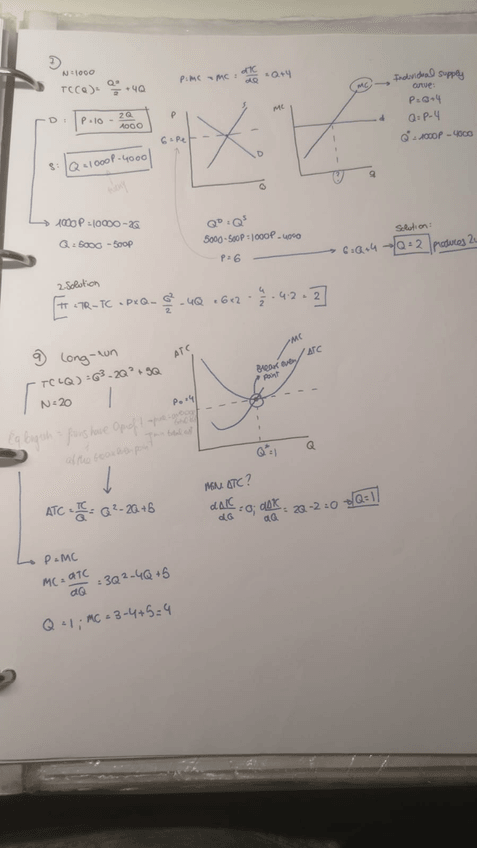 N=1000
TC(Q) = Q²/2 + 4Q
P=MC → MC = dTC/dQ = Q+4
D: P=10 - 2Q/1000
S: Q=1000P-4000
P
S
6=Pe
D
Q
MC
MC
d
Q
Individual supply
curve:
P=Q+4
Q=P-4
Qˢ=1000P-4000
1000P=10000-2Q
Q=5000-500P
Qᴰ=Qˢ
5000-500P=1000P-4000
P=6
Solution:
6=Q+4 → Q=2 produces
2. Solution
π = TR-TC = P×Q - Q²/2 - 4Q = 6×2 - 4/2 - 4·2 = 2
9) Long-run
TC(Q)=Q³-2Q²+5Q
N=20
ATC
MC
ATC
Break even
point
P=4
Q*=1
Q
ATC = TC/Q = Q²-2Q+5
Min ATC?
dATC/dQ = 0; dATC/dQ = 2Q-2=0 → Q=1
P=MC
MC = dTC/dQ = 3Q²-4Q+5
Q=1; MC=3-4+5=4